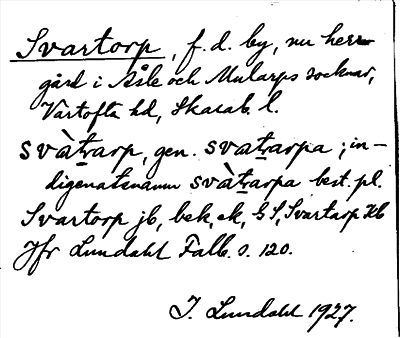 Svartorp, f. d. by, nu herr-
gård i Åsle och Mularps socknar,
Vartofta hd, Skarab. l.
svàtarp, gen. svatarpa; in-
digenatsnamn svàtarpa best. pl.
Svartorp jb, bek, ek, GS, Svartarp Hb
Jfr Lundahl Falb. s. 120.
I. Lundahl 1927.